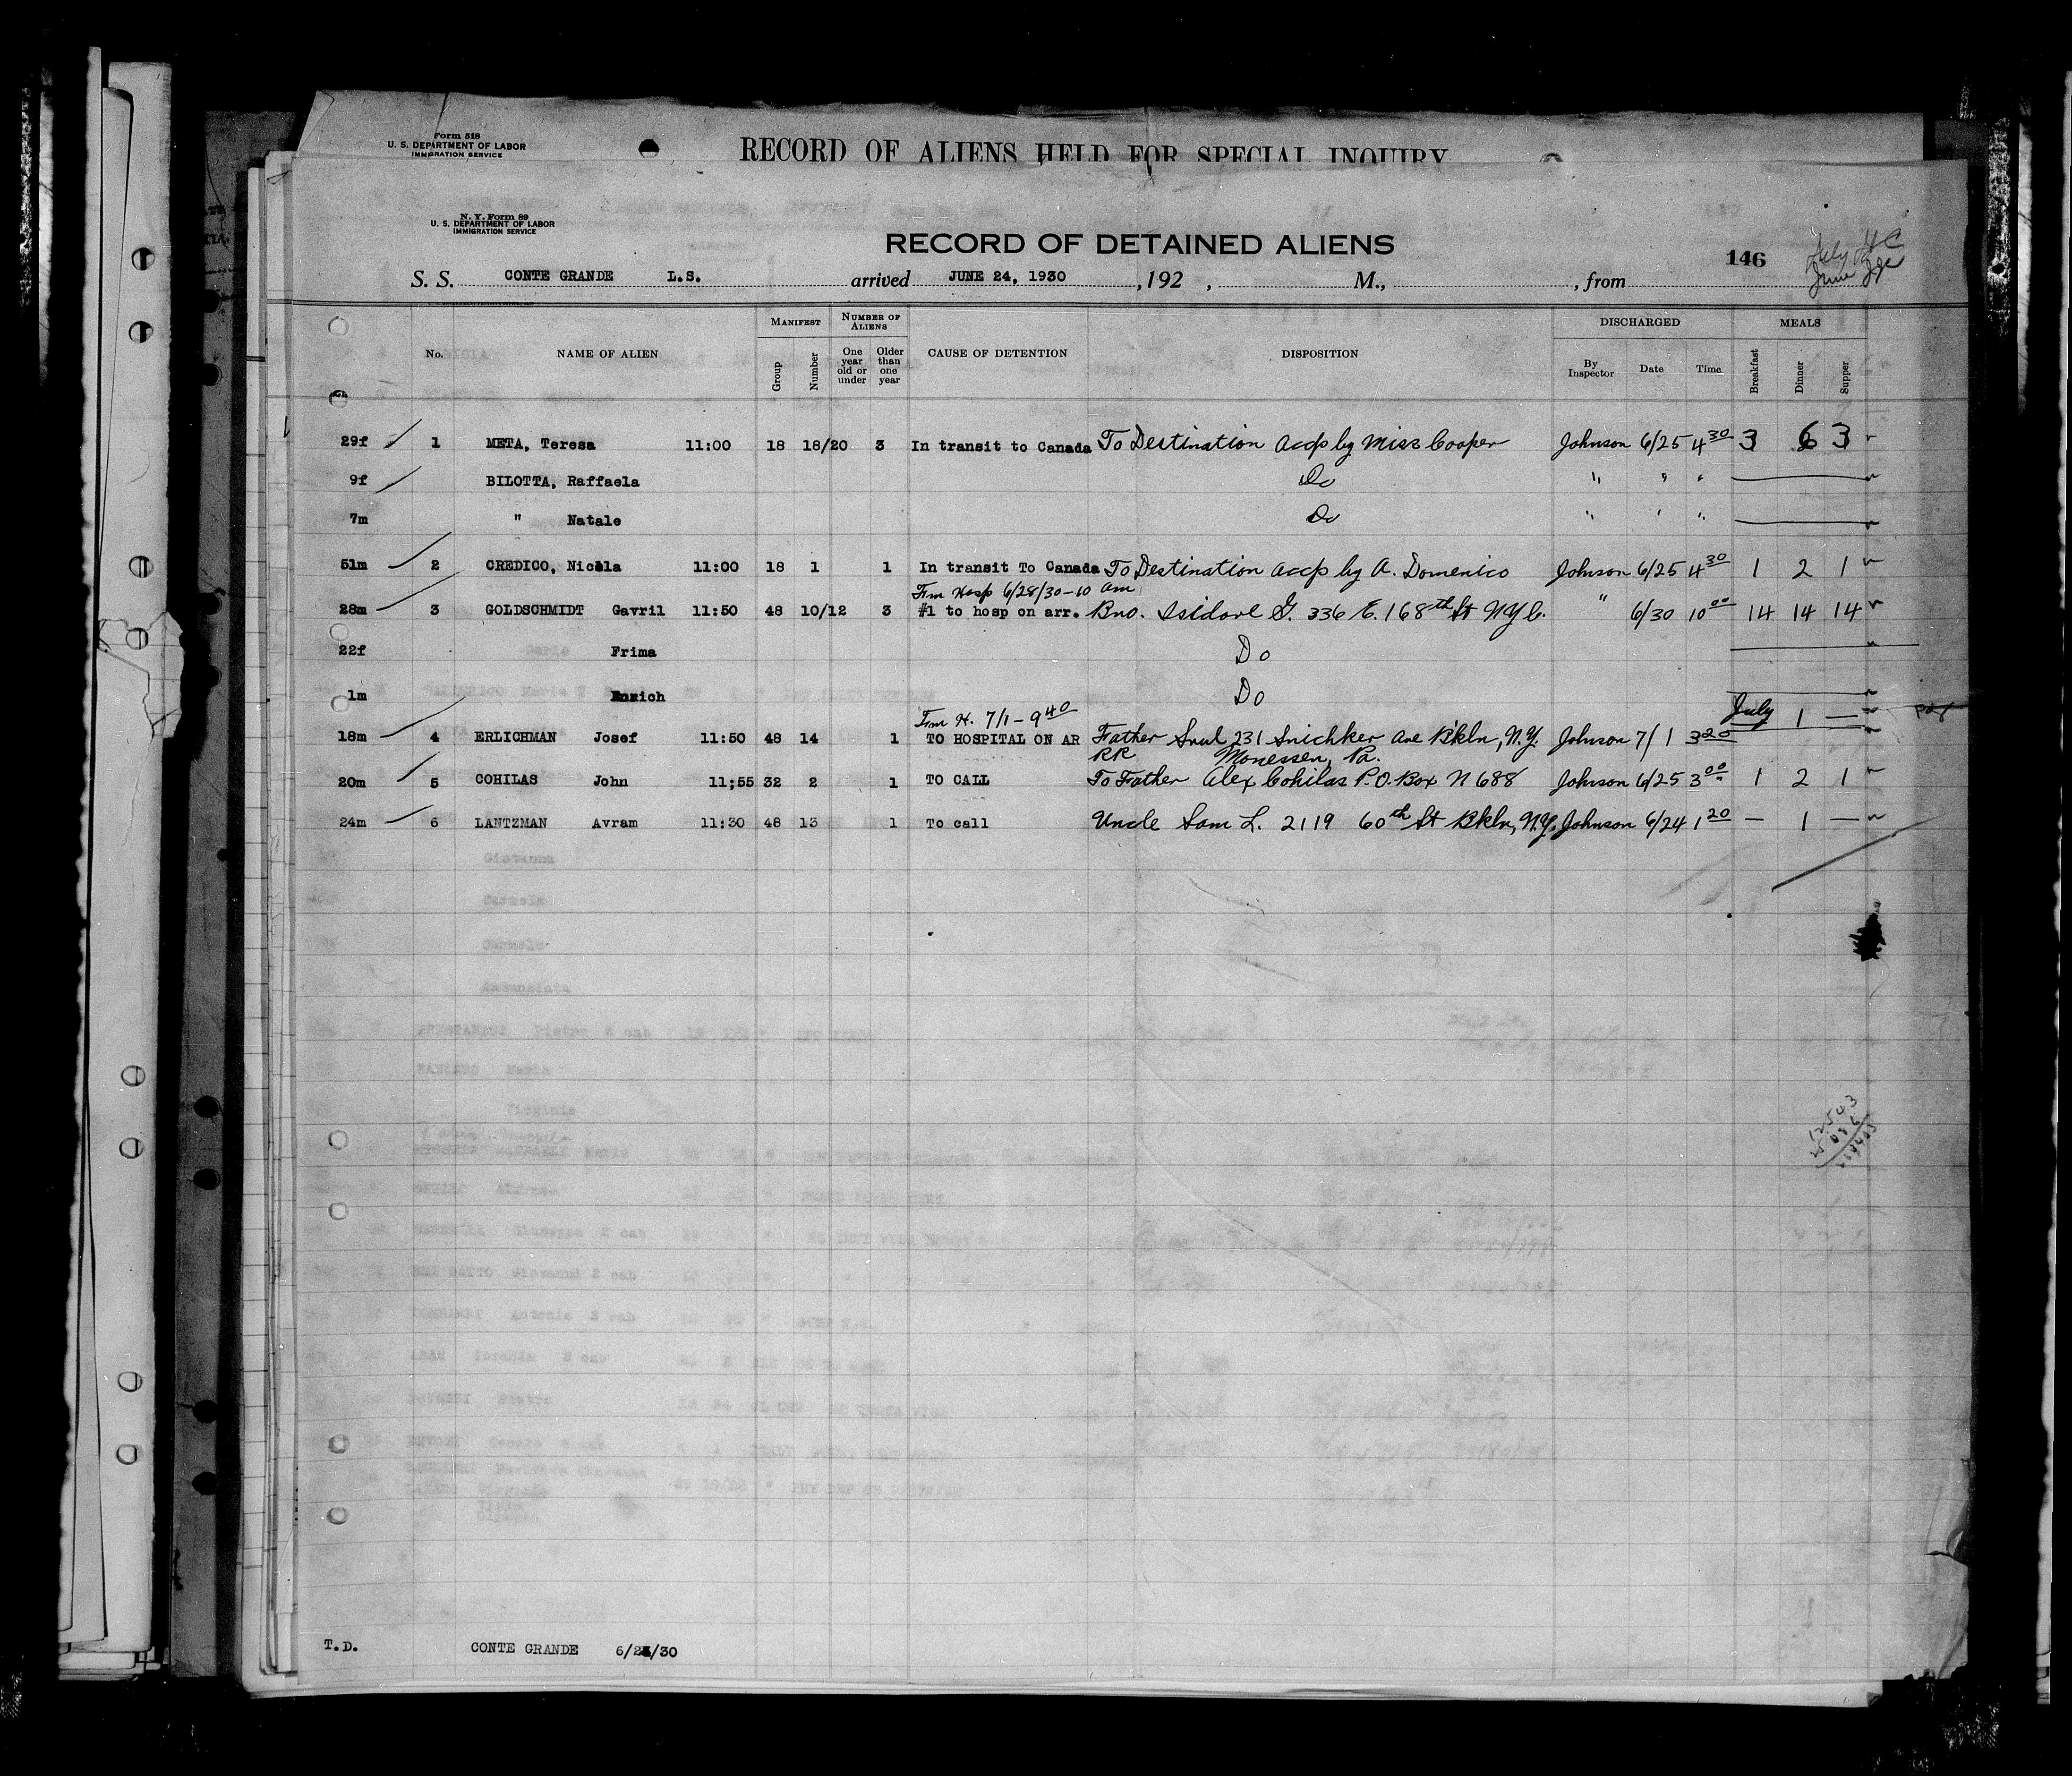 Form 518
U. S. DEPARTMENT OF LABOR
IMMIGRATION SERVICE
RECORD OF ALIENS HELD FOR SPECIAL INQUIRY
N. Y. Form 89
U. S. DEPARTMENT OF LABOR
IMMIGRATION SERVICE
RECORD OF DETAINED ALIENS
146
S. S. CONTE GRANDE L.S. arrived JUNE 24, 1930 , 192 , M., , from
MANIFEST NUMBER OF ALIENS DISCHARGED MEALS
No. NAME OF ALIEN Group Number One year old or under Older than one year CAUSE OF DETENTION DISPOSITION By Inspector Date Time Breakfast Dinner Supper
29f 1 META, Teresa 11:00 18 18/20 3 In transit to Canada To Destination accp by Miss Cooper Johnson 6/25 4 30 3 6 3
9f BILOTTA, Raffaela Do " " "
7m " Natale Do " " "
51m 2 CREDICO, Nicola 11:00 18 1 1 In transit To Canada To Destination accp by A. Domenico Johnson 6/25 4 30 1 2 1
Frm Hosp 6/28/30-10 am
28m 3 GOLDSCHMIDT Gavril 11:50 48 10/12 3 #1 to hosp on arr. Bro. Isidore G. 336 E. 168th St NYC. " 6/30 10 00 14 14 14
22f Frima Do
1m Enrich Do
Frm H. 7/1-9 40 July 1 —
18m 4 ERLICHMAN Josef 11:50 48 14 1 TO HOSPITAL ON AR Father Srul 231 Snichker Ave Bkln, N.Y. Johnson 7/1 3 20
RR Monessen, Pa.
20m 5 COHILAS John 11;55 32 2 1 TO CALL To Father Alex Cohilas P.O. Box N 688 Johnson 6/25 3 00 1 2 1
24m 6 LANTZMAN Avram 11:30 48 13 1 To call Uncle Sam L. 2119 60th St Bkln, N.Y. Johnson 6/24 1 20 — 1 —
T.D. CONTE GRANDE 6/24/30